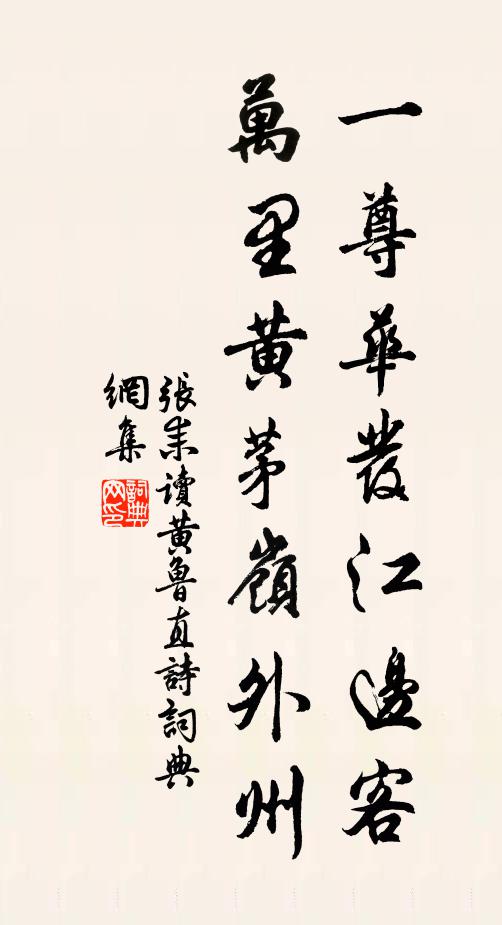 一尊華發江邊客
萬里黃茅嶺外州
張耒讀黃魯直詩詞典
網集
詞典網印